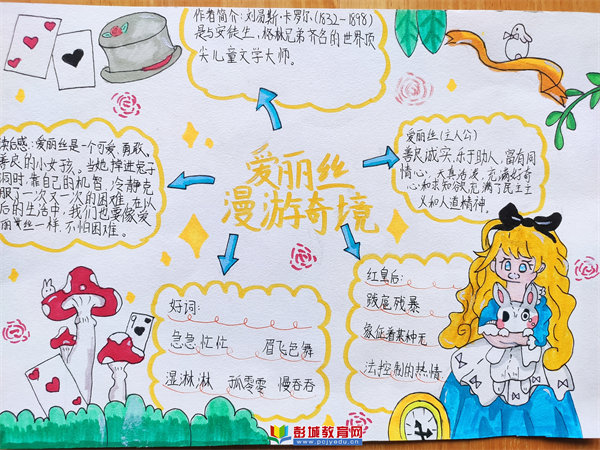 作者简介:刘易斯·卡罗尔(1832-1898)
是与安徒生,格林兄弟齐名的世界顶
尖儿童文学大师。
读后感:爱丽丝是一个可爱、勇敢、
善良的小女孩。当她掉进兔子
洞时,靠自己的机智,冷静克
服了一次又一次的困难,在以
后的生活中,我们也要像爱
丽丝一样,不怕困难。
爱丽丝
漫游奇境
爱丽丝(主人公)
善良诚实,乐于助人,富有同
情心,天真活泼,充满好奇
心和求知欲,充满了民主主
义和人道精神。
好词:
急急忙忙 眉飞色舞
湿淋淋 孤零零 慢吞吞
红皇后:
贱庖残暴
象征着某种无
法控制的热情
彭城教育网
www.pcjyedu.cn